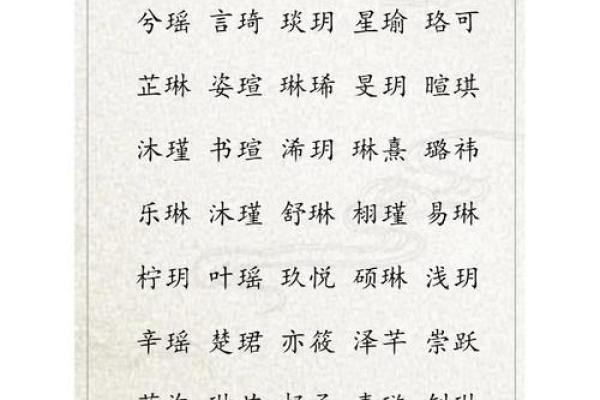 兮瑶 言琦 琰玥 星瑜 珞可
芷琳 姿瑄 琳琋 旻玥 暄琪
沐瑾 书瑄 浠玥 琳熹 璐祎
乐琳 沐瑾 舒琳 栩瑾 易琳
柠玥 叶瑶 玖悦 硕琳 浅玥
辛瑶 楚珺 亦筱 泽芊 崇跃